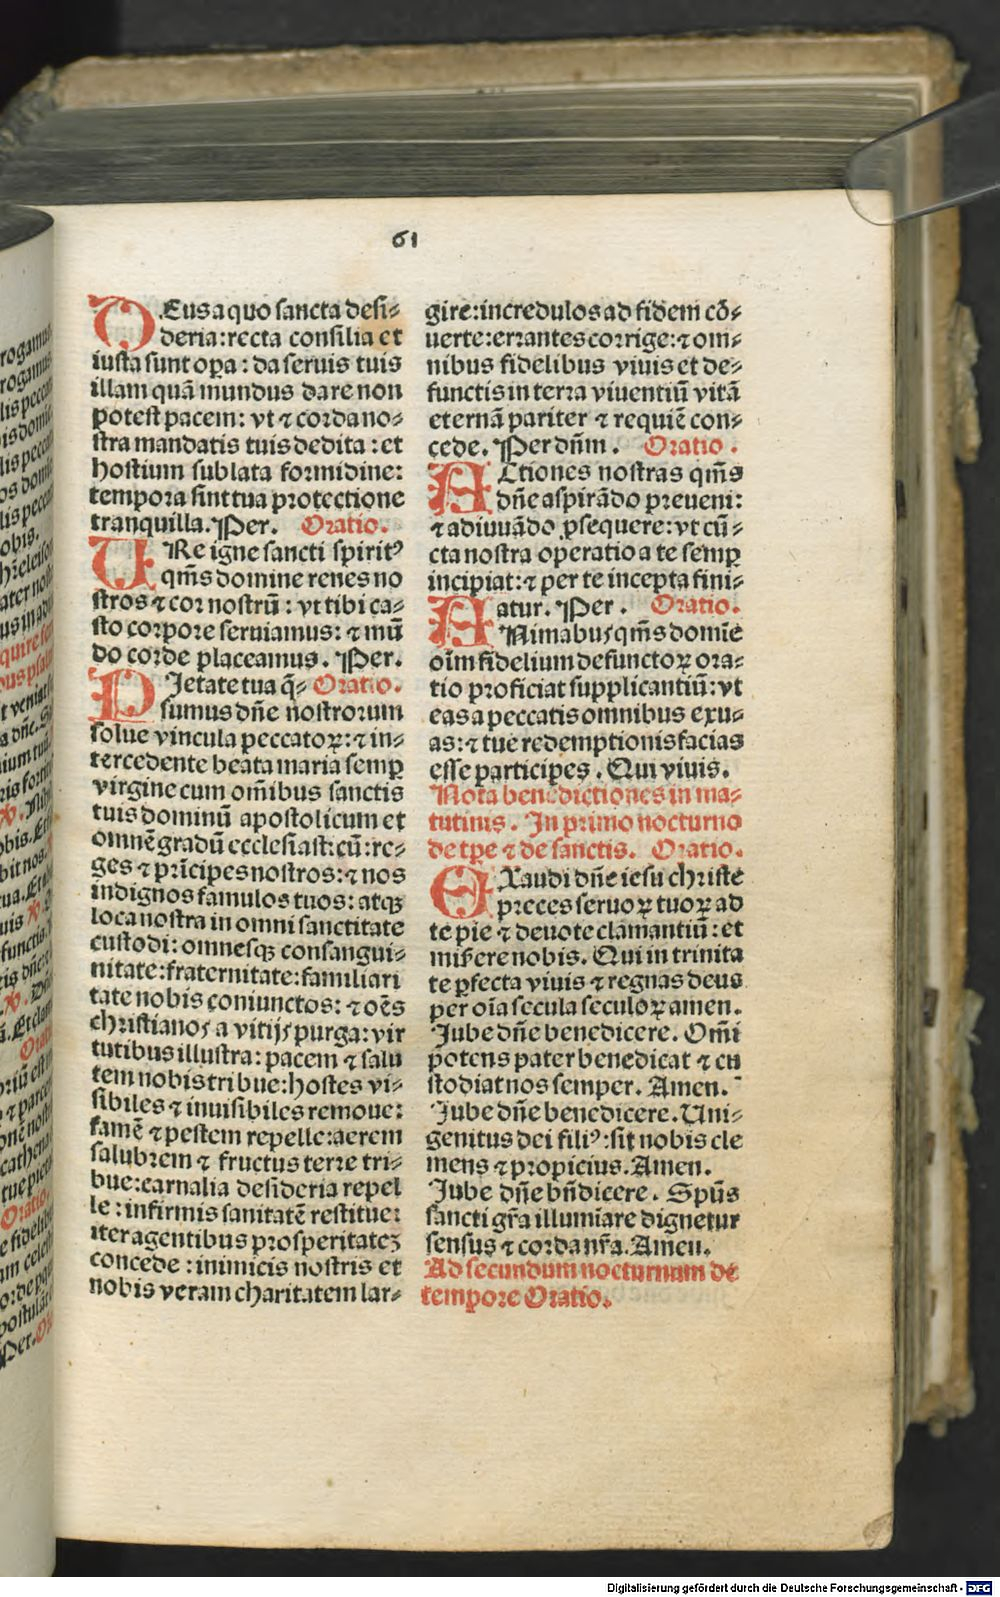 61
DEus a quo sancta desi-
deria: recta consilia et
iusta sunt opa: da seruis tuis
illam quā mundus dare non
potest pacem: vt ⁊ corda no-
stra mandatis tuis dedita: et
hostium sublata formidine:
tempora sint tua protectione
tranquilla. Per. Oratio.
URe igne sancti spiritꝰ
qm̄s domine renes no
stros ⁊ cor nostrū: vt tibi ca-
sto corpore seruiamus: ⁊ mū
do corde placeamus. Per.
PIetate tua q̄- Oratio.
sumus dn̄e nostrorum
solue vincula peccatoꝝ: ⁊ in-
tercedente beata maria semꝑ
virgine cum om̄ibus sanctis
tuis dominū apostolicum et
omnē gradū ecclesiast: cū: re-
ges ⁊ prīcipes nostros: ⁊ nos
indignos famulos tuos: atqꝫ
loca nostra in omni sanctitate
custodi: omnesqꝫ consangui-
nitate: fraternitate: familiari
tate nobis coniunctos: ⁊ oēs
christianos a vitijs purga: vir
tutibus illustra: pacem ⁊ salu
tem nobis tribue: hostes vi-
sibiles ⁊ inuisibiles remoue:
famē ⁊ pestem repelle: aerem
salubrem ⁊ fructus terre tri-
bue: carnalia desideria repel
le: infirmis sanitatē restitue:
iter agentibus prosperitateꝫ
concede: inimicis nostris et
nobis veram charitatem lar-
gire: incredulos ad fidem cō-
uerte: errantes corrige: ⁊ om-
nibus fidelibus viuis et de-
functis in terra viuentiū vitā
eternā pariter ⁊ requiē con-
cede. Per dn̄m. Oratio.
ACtiones nostras qm̄s
dn̄e aspirādo preueni:
⁊ adiuuādo ꝓsequere: vt cū-
cta nostra operatio a te semꝑ
incipiat: ⁊ per te incepta fini-
atur. Per. Oratio.
ANimabus qm̄s domīe
oīm fidelium defunctoꝝ ora-
tio proficiat supplicantiū: vt
eas a peccatis omnibus exu-
as: ⁊ tue redemptionis facias
esse participes. Qui viuis.
Nota benedictiones in ma-
tutinis. In primo nocturno
de tpe ⁊ de sanctis. Oratio.
EXaudi dn̄e iesu christe
preces seruoꝝ tuoꝝ ad
te pie ⁊ deuote clamantiū: et
miserere nobis. Qui in trinita
te ꝑfecta viuis ⁊ regnas deus
per oīa secula seculoꝝ amen.
Jube dn̄e benedicere. Om̄i
potens pater benedicat ⁊ cu
stodiat nos semper. Amen.
Jube dn̄e benedicere. Uni-
genitus dei filiꝰ: sit nobis cle
mens ⁊ propicius. Amen.
Jube dn̄e bn̄dicere. Spūs
sancti gr̄a illumīare dignetur
sensus ⁊ corda nr̄a. Amen.
Ad secundum nocturnum de
tempore Oratio.
Digitalisierung gefördert durch die Deutsche Forschungsgemeinschaft - DFG